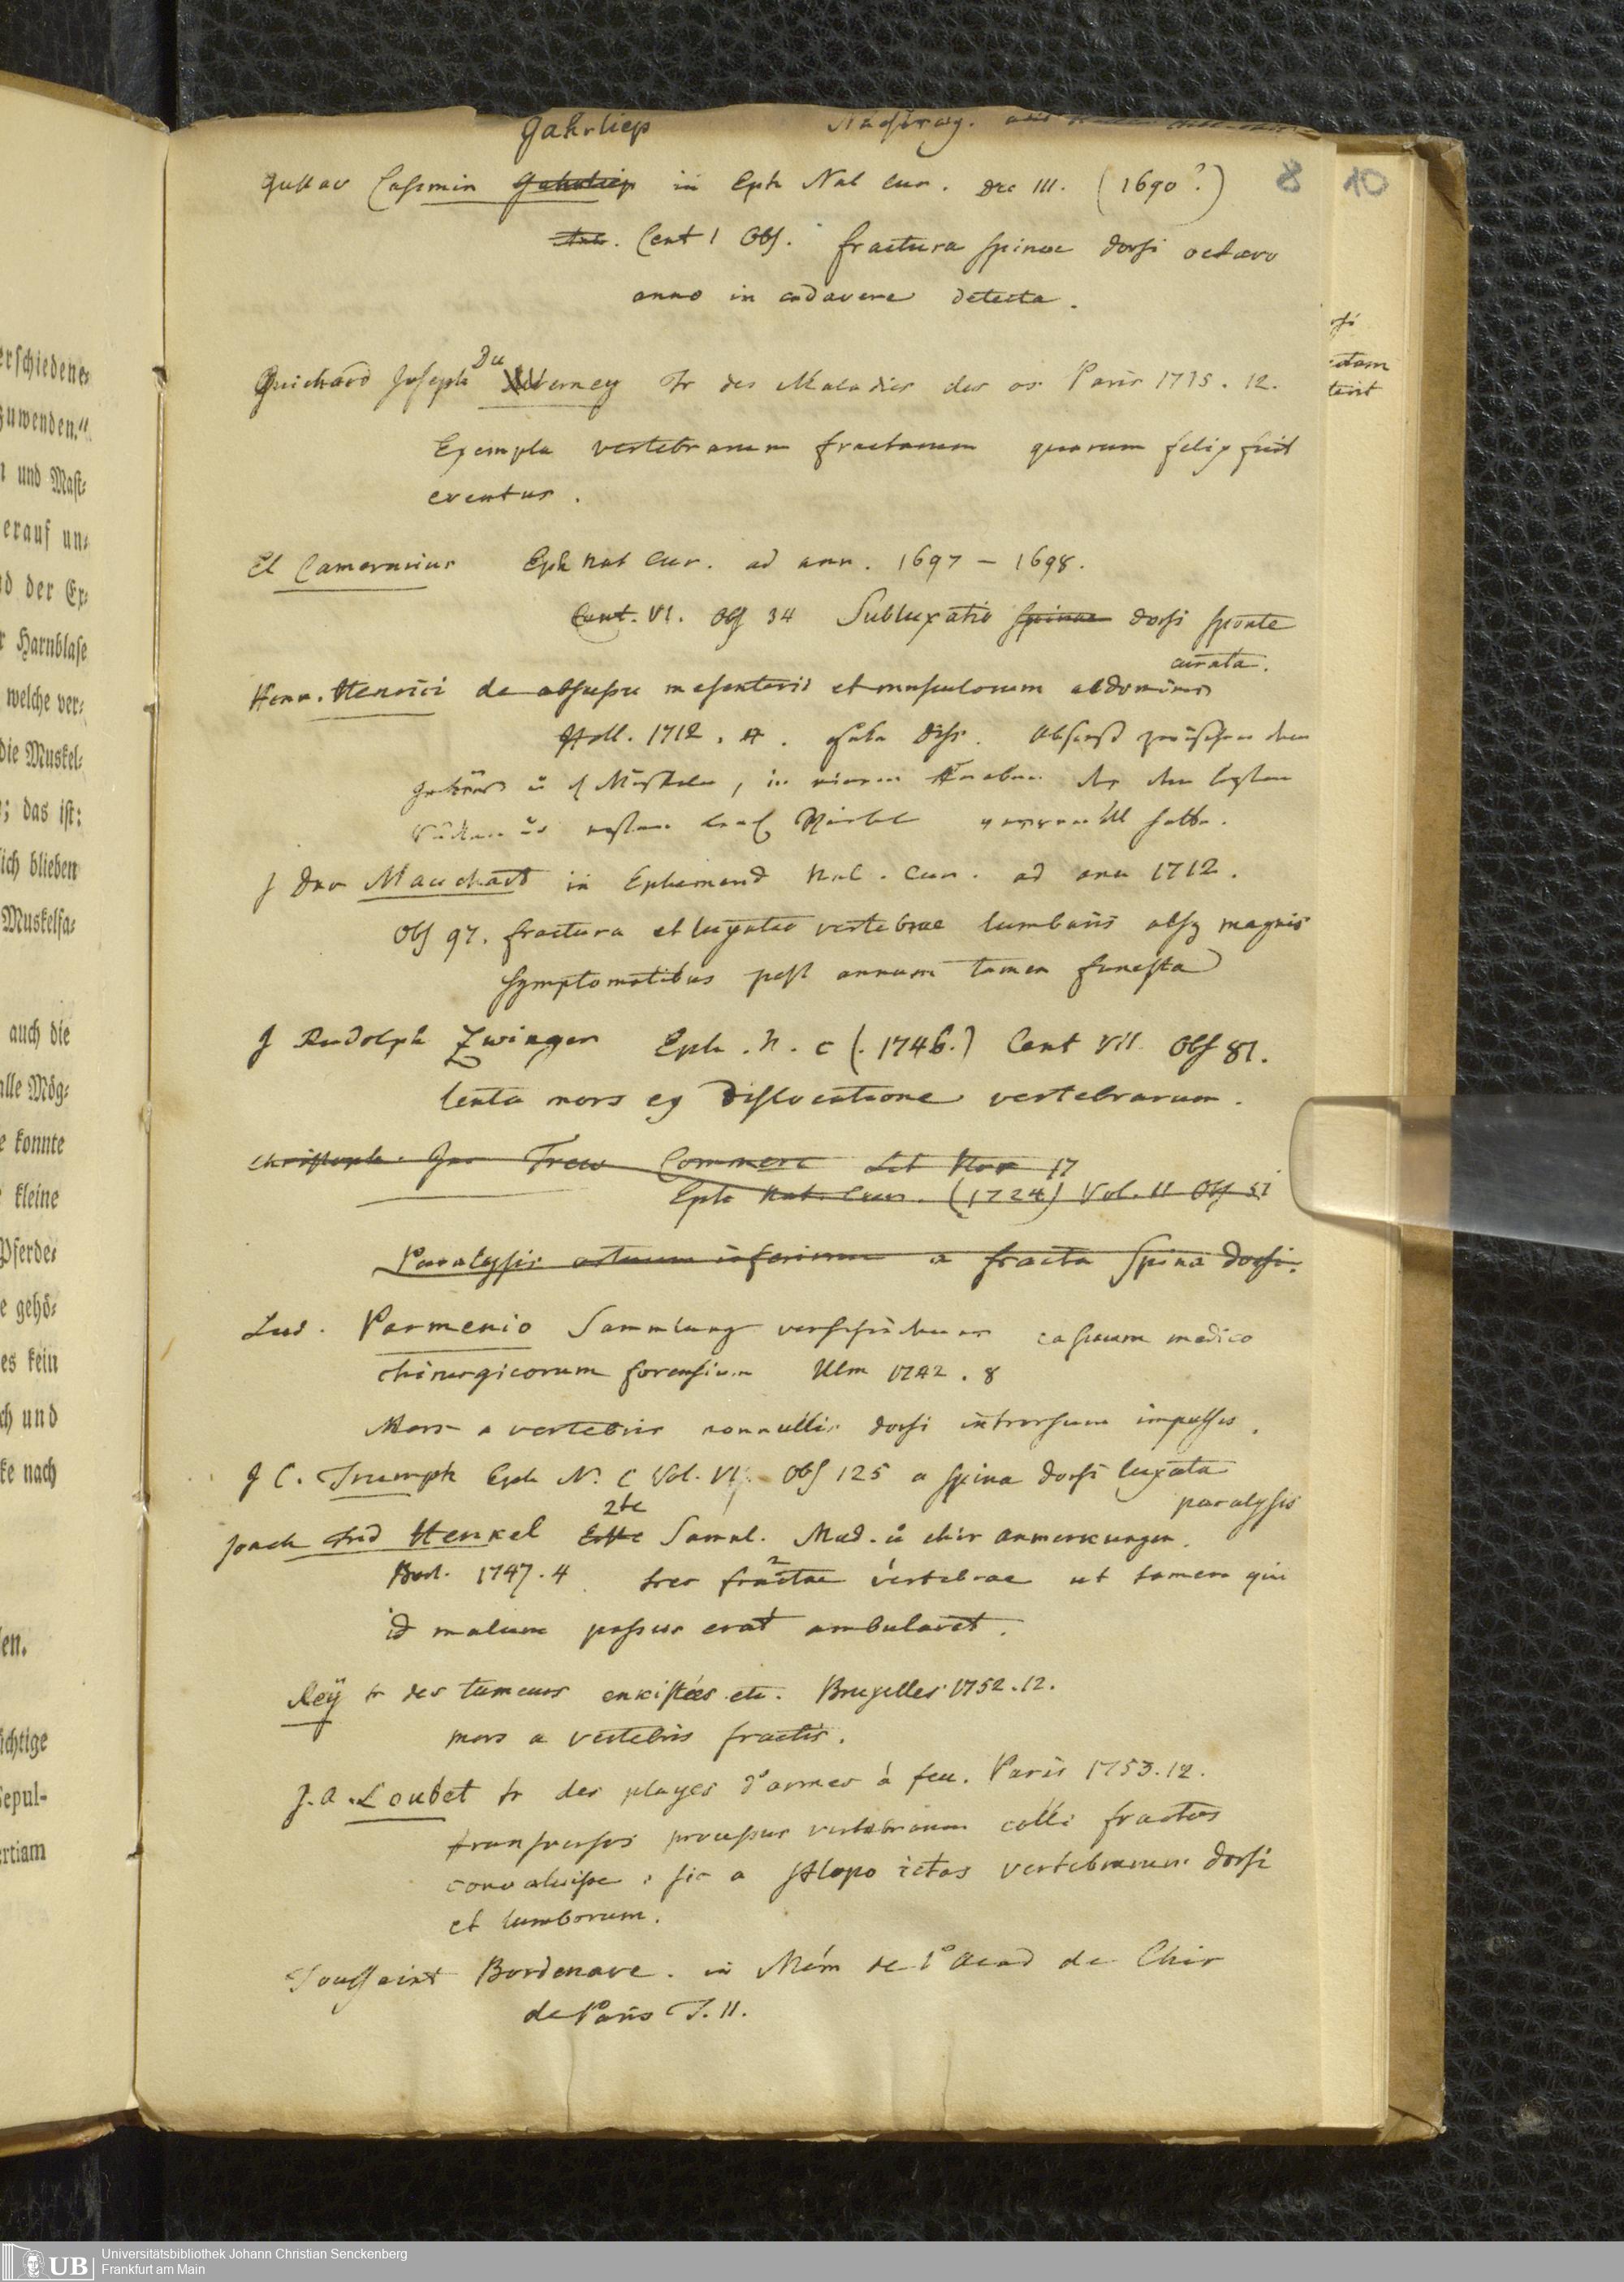 Gahrliep Nachtrag.
Gustav Casimir Gahrliep in Eph Nat Cur. Dec III. (1690?)
8
10
Cent 1 Obs. fractura spinae dorsi octavo
anno in cadavere detecta.
Guichard Joseph Du Verney Tr des Maladies des os Paris 1775. 12.
Exempla vertebrarum fractarum quarum felix fuit
eventus.
El Camerarius Eph Nat Cur. ad ann. 1697 – 1698.
Cent. VI. Obs 34 Subluxatio spinae dorsi sponte
curata.
Henr. Henrici de abscessu mesenterii et musculorum abdominis
Hall. 1712. 4. gute Diss. Absceß zwischen dem
J Dav Mauchart in Ephemerid Nat. Cur. ad ann 1712.
Obs 97. fractura et luxatio vertebrae lumbaris absq magnis
symptomatibus post annum tamen funesta
J Rudolph Zwinger Eph. N. C (1746.) Cent VII Obs 81.
lenta mors ex dislocatione vertebrarum.
Christoph. Jac Trew Commerc Lit Nor 17
Eph Nat. Cur. (1724) Vol. II Obs 51
Paralysis artuum inferiorum a fracta spina dorsi.
Lud. Parmenio Sammlung verschiedener casuum medico
chirurgicorum forensium Ulm 1742. 8
Mors a vertebris nonnullis dorsi introrsum impulsis.
J C. Trumph Eph N. C Vol. VI. Obs 125 a spina dorsi luxata
paralysis
Joach Frid Henkel 2te Samml. Med. u chir Anmerkungen.
Berl. 1747. 4 tres fractae vertebrae ut tamen qui
id malum passus erat ambularet.
Rey tr des tumeurs enkistées etc. Bruxelles 1752. 12.
mors a vertebris fractis.
J. A. Loubet tr des playes d'armes à feu. Paris 1753. 12.
transversos processus vertebrarum colli fractos
convaluisse, sic a sclopo ictas vertebrarum dorsi
et lumborum.
Toussaint Bordenave. in Mém de l'Acad de Chir
de Paris T. II.
erschiedene
zuwenden."
n und Mast-
erauf un-
nd der Ex-
r Harnblase
welche ver-
die Muskel-
; das ist:
ich blieben
Muskelfa-
auch die
alle Mög-
e konnte
kleine
Pferde-
e gehö-
es kein
ch und
ke nach
en.
ichtige
Sepul-
ertiam
UB
Universitätsbibliothek Johann Christian Senckenberg
Frankfurt am Main